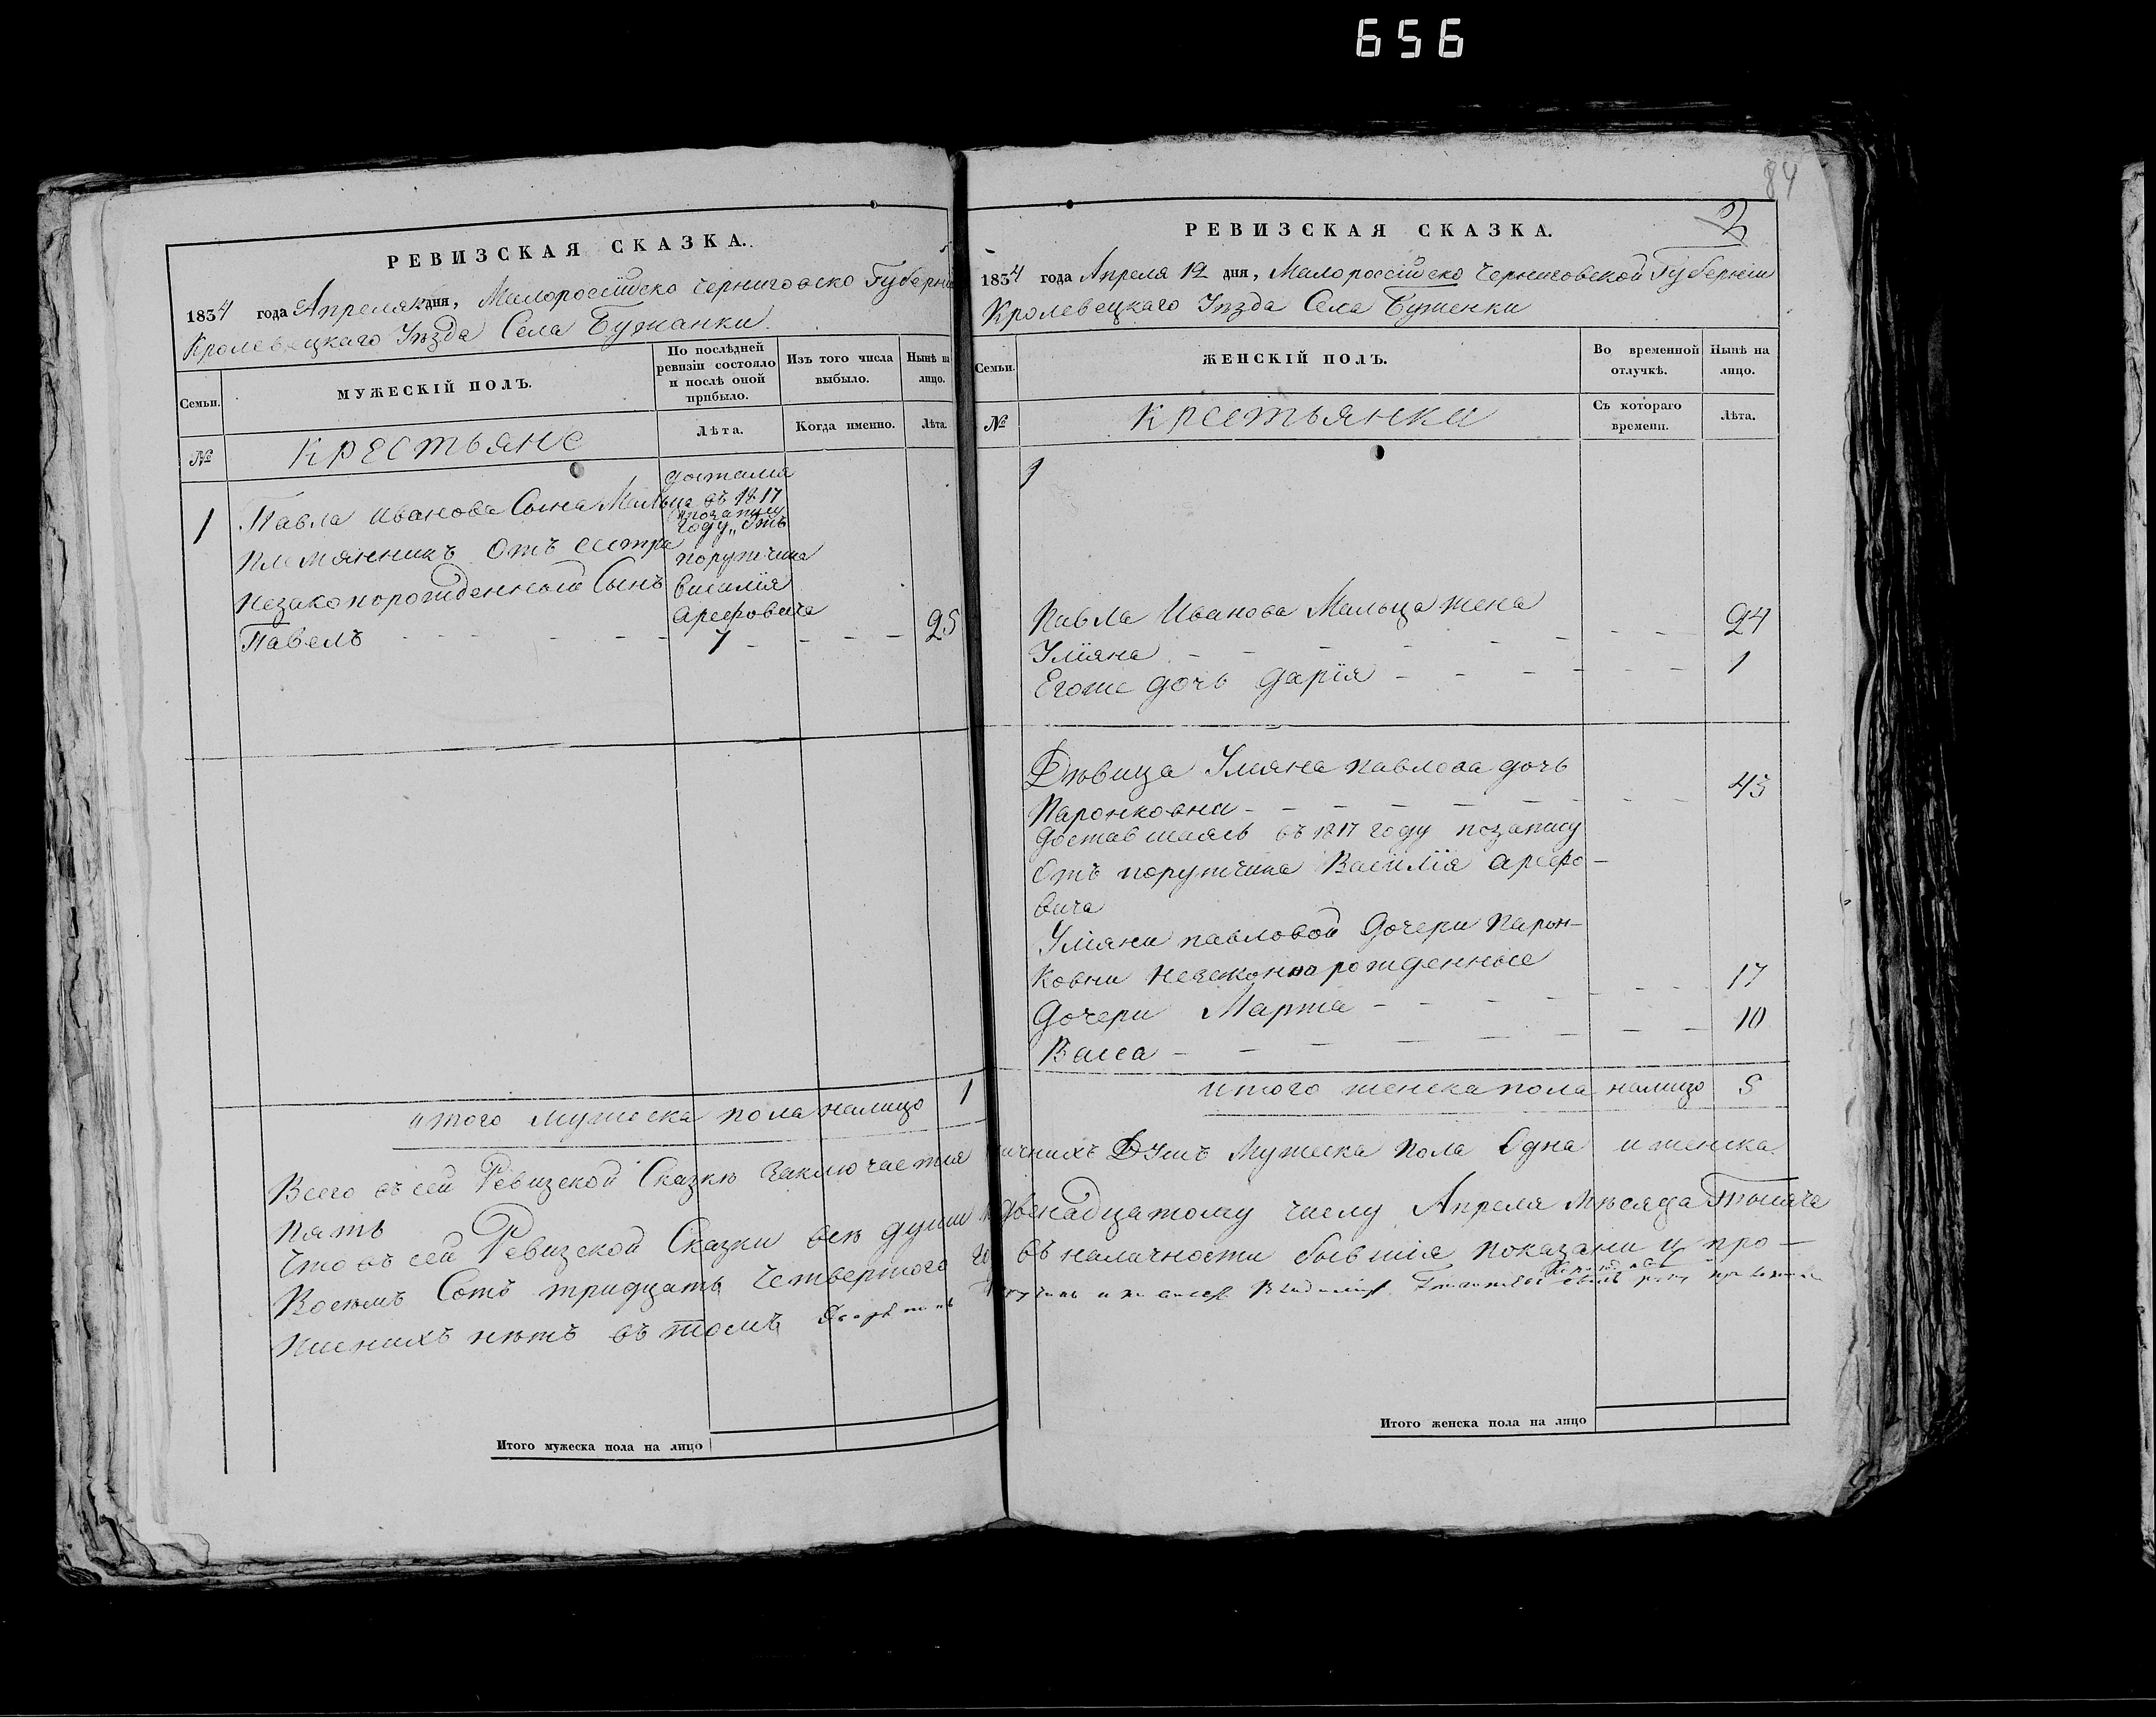 656
84
РЕВИЗСКАЯ СКАЗКА.
1834 года Апреля дня, Малороссійско Черниговско Губерніи
Кролевецкаго Уѣзда Села Бужанки
Семьи.
МУЖЕСКІЙ ПОЛЪ.
По послѣдней ревизіи состояло и послѣ оной прибыло.
Изъ того числа выбыло.
Нынѣ на лицо.
№
крестьяне
Лѣта.
Когда именно.
Лѣта.
1
Павла Иванова Сына Мальца
Племянникъ Отъ сестри
Незаконорожденный Сынъ
Павелъ
въ 1817
позапису
году Отъ
поручика
Василія
Арефовича
7
25
итого мужеска пола налицо 1
2
РЕВИЗСКАЯ СКАЗКА.
1834 года Апреля 12 дня, Малороссійско Черниговской Губерніи
Кролевецкаго Уѣзда Села Буженки
Семьи.
ЖЕНСКІЙ ПОЛЪ.
Во временной отлучкѣ.
Нынѣ на лицо.
№
крестьянки
Съ котораго времени.
Лѣта.
1
Павла Иванова Мальца жена
Уліяна 24
Егоже дочь дарія 1
Дѣвица Уліяна павлова дочь
Паронковни 45
доставшаясь въ 1817 году позапису
Отъ поручика Василія арефо-
вича
Уліяни павловой дочери Парон-
ковни незаконнорожденные
Дочери Марта 17
Васса 10
итого женска пола налицо 5
Всего въ сей Ревизской Сказкѣ заключается Душъ Мужеска пола Одна и женска
пять
Что въ сей Ревизской Сказки всѣ души двенадцатому числу Апреля мѣсяца Тысяча
Восемъ Сотъ тридцать четвертого въ наличности бывшіе показани и про-
писнихъ нѣтъ въ томъ
Итого мужеска пола на лицо
Итого женска пола на лицо